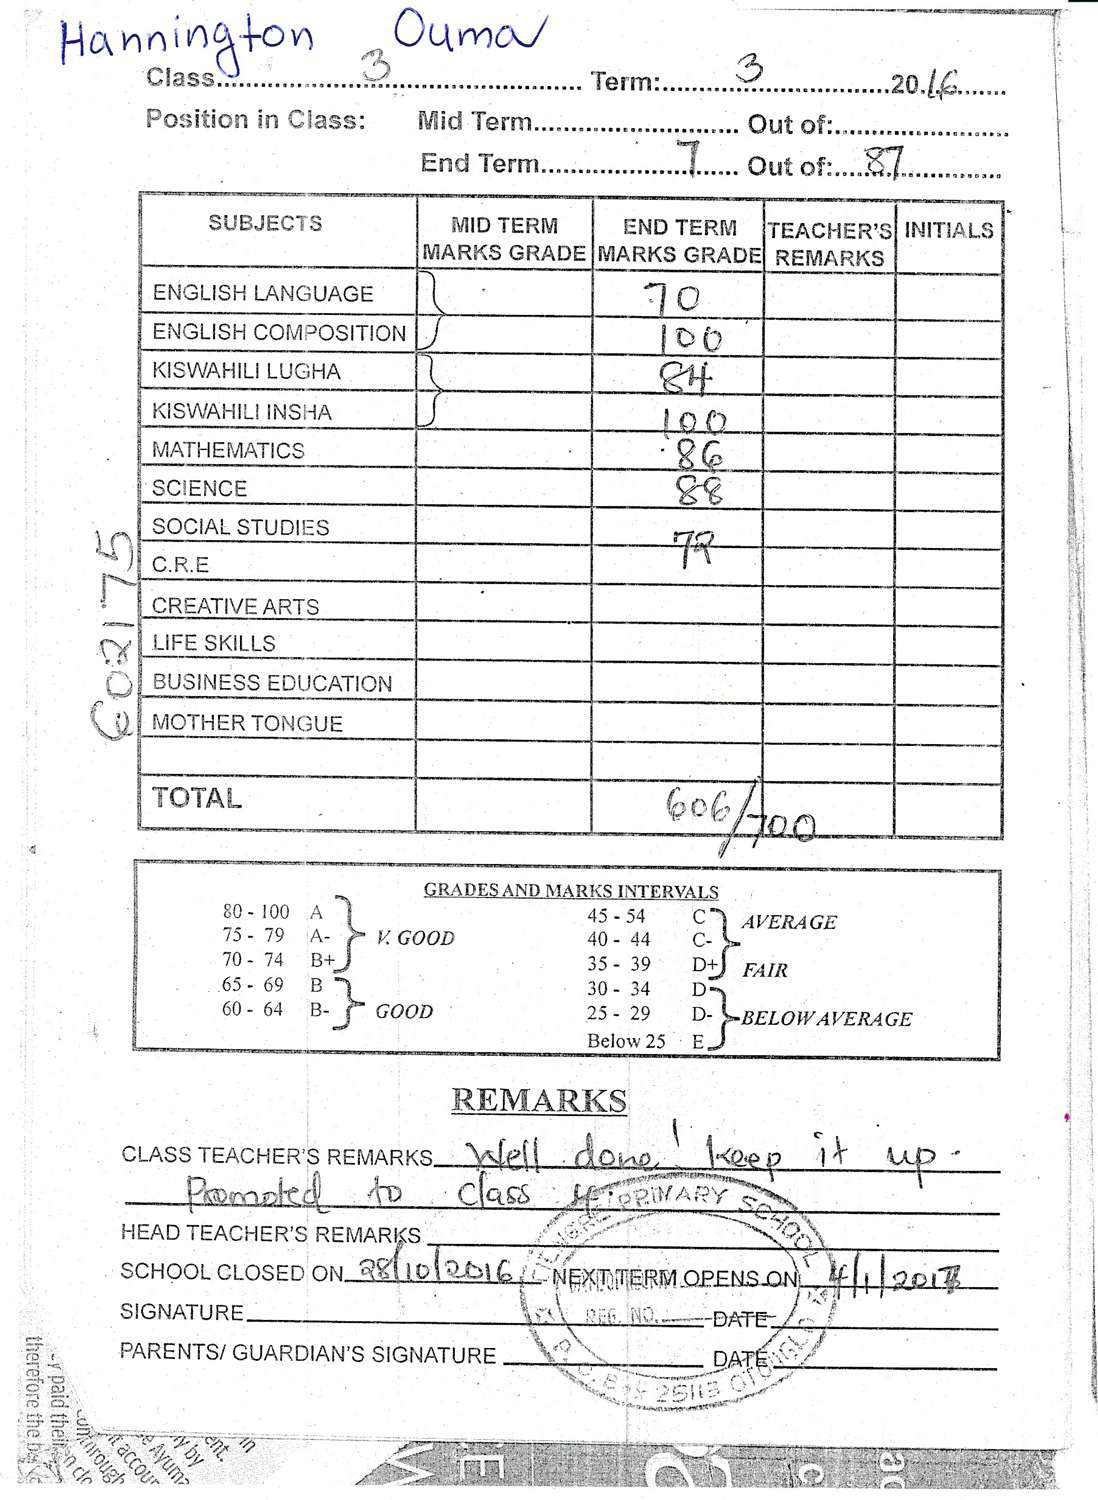 Hannington Ouma
Class 3 Term: 3 2016
Position in Class: Mid Term Out of:
End Term 7 Out of: 87
SUBJECTS MID TERM MARKS GRADE END TERM MARKS GRADE TEACHER'S REMARKS INITIALS
ENGLISH LANGUAGE 70
ENGLISH COMPOSITION 100
KISWAHILI LUGHA 84
KISWAHILI INSHA 100
MATHEMATICS 86
SCIENCE 88
SOCIAL STUDIES 78
C.R.E
CREATIVE ARTS
LIFE SKILLS
BUSINESS EDUCATION
MOTHER TONGUE
TOTAL 606/700
602175
GRADES AND MARKS INTERVALS
80 - 100 A
75 - 79 A- V. GOOD
70 - 74 B+
65 - 69 B
60 - 64 B- GOOD
45 - 54 C AVERAGE
40 - 44 C-
35 - 39 D+ FAIR
30 - 34 D
25 - 29 D- BELOW AVERAGE
Below 25 E
REMARKS
CLASS TEACHER'S REMARKS Well done! keep it up.
Promoted to class 4.
HEAD TEACHER'S REMARKS
SCHOOL CLOSED ON 28/10/2016 NEXT TERM OPENS ON 4/1/2017
SIGNATURE DATE
PARENTS/ GUARDIAN'S SIGNATURE DATE
PRIMARY SCHOOL
REG. NO.
P. O. Box 25113 OTONGLO
therefore the
paid their